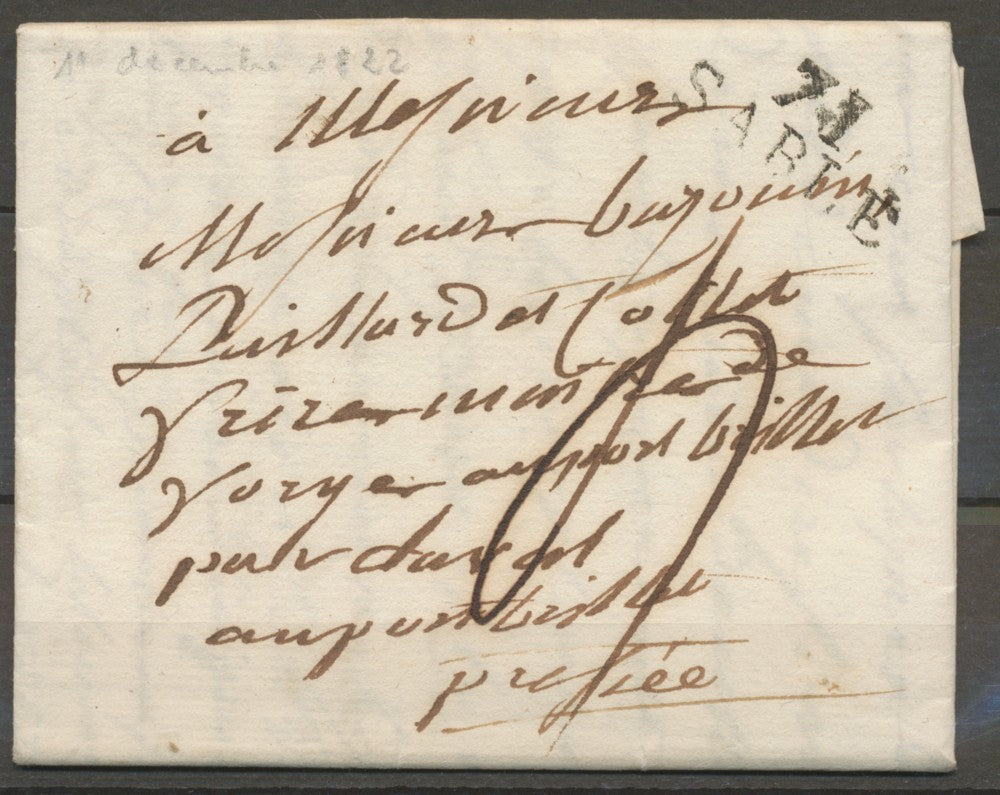 1er decembre 1822
71
SABLE
à Messieurs
Messieurs bazouin
Paillard et Collet
freres mtres de
forges au port brillet
par Laval
au port brillet
pressée